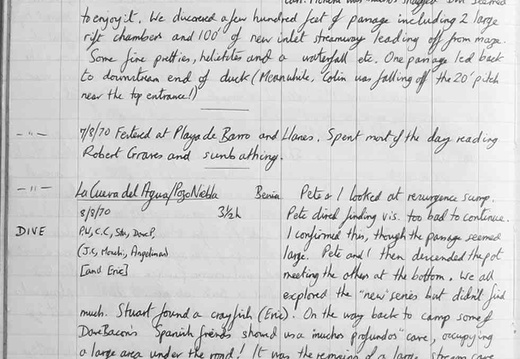 to enjoy it. We discovered a few hundred feet of passage including 2 large
rift chambers and 100' of new inlet streamway leading off from maze.
Some fine pretties, helictites and a waterfall etc. One passage led back
to downstream end of duck (Meanwhile, Colin was falling off the 20' pitch
near the top entrance!)
-"- 7/8/70 Festered at Playa de Barro and Llanes. Spent most of the day reading
Robert Graves and sunbathing.
-"- La Cueva del Agua/Pozo Niebla Benia Pete & I looked at resurgence sump.
8/8/70 3½h Pete dived finding vis. too bad to continue.
DIVE P.W, C.C, Stu, Dave P. I confirmed this, though the passage seemed
(J.S, Angelines) large. Pete and I then descended the pot
[and Eric] meeting the others at the bottom. We all
explored the "new" series but didn't find
much. Stuart found a crayfish (Eric)! On the way back to camp some of
Dave Bacon's Spanish friends showed us a "mucho profundos" cave, occupying
a large area under the road! It was the remains of a large stream cave